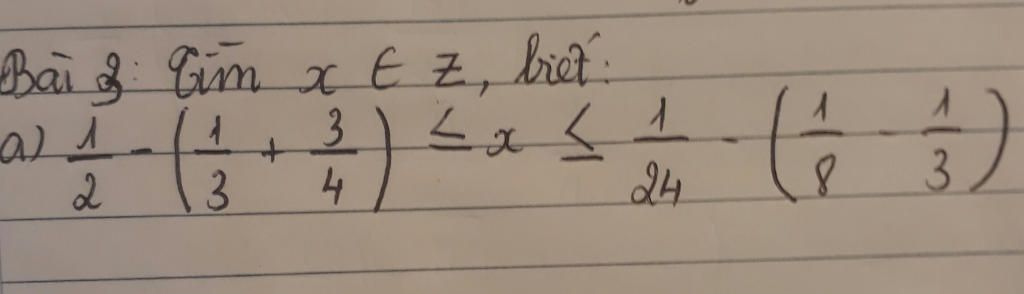 Bài 3: Tìm x ∈ Z, biết:
a) 1/2 - (1/3 + 3/4) ≤ x ≤ 1/24 - (1/8 - 1/3)